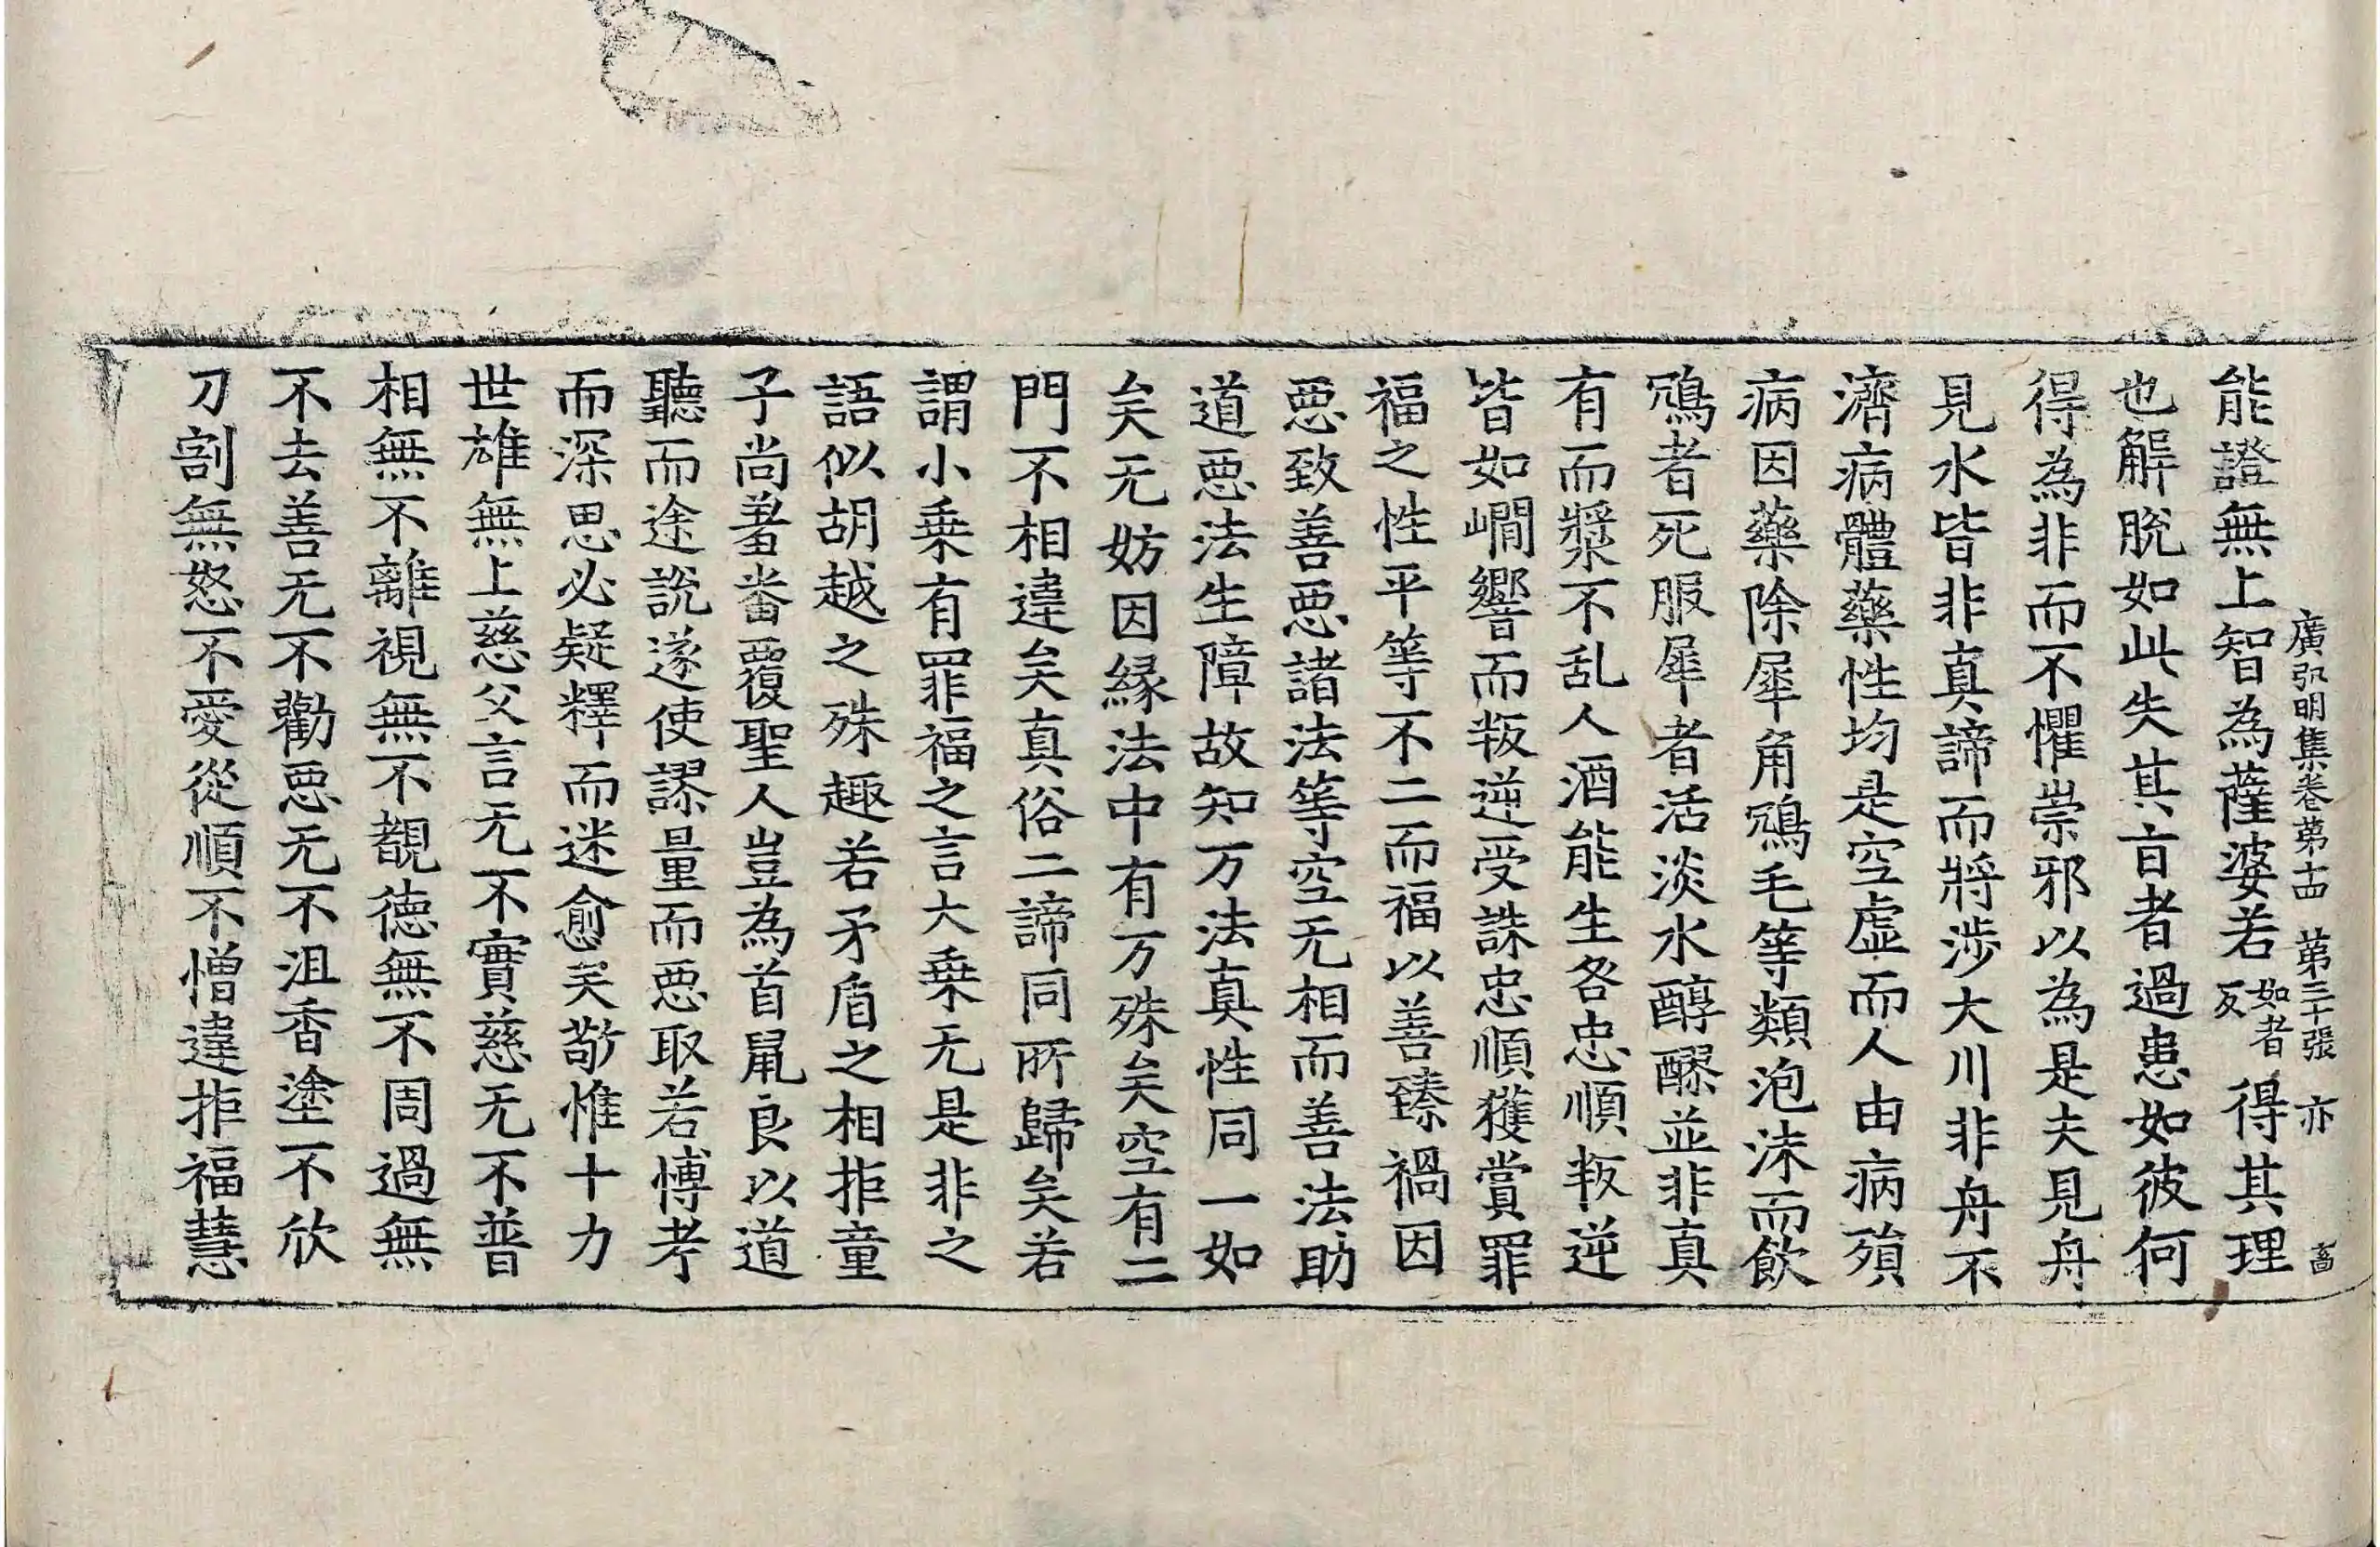 廣弘明集卷第十四　第三十張　亦　富
能證無上智為薩婆若如者反得其理
也解脫如此失其旨者過患如彼何
得為非而不懼崇邪以為是夫見舟
見水皆非真諦而將涉大川非舟不
濟病體藥性均是空虛而人由病殞
病因藥除犀角鴆毛等類泡沫而飲
鴆者死服犀者活淡水醇醪並非真
有而漿不乱人酒能生咎忠順叛逆
皆如㵎響而叛逆受誅忠順獲賞罪
福之性平等不二而福以善臻禍因
惡致善惡諸法等空无相而善法助
道惡法生障故知万法真性同一如
矣无妨因緣法中有万殊矣空有二
門不相違矣真俗二諦同所歸矣若
謂小乗有罪福之言大乗无是非之
語似胡越之殊趣若矛盾之相拒童
子尚羞翻覆聖人豈為首鼠良以道
聽而途說遂使謬量而惡取若博考
而深思必疑釋而迷愈矣敬惟十力
世雄無上慈父言无不實慈无不普
相無不離視無不覩德無不周過無
不去善无不勸惡无不沮香塗不欣
刀割無怒不愛從順不憎違拒福慧